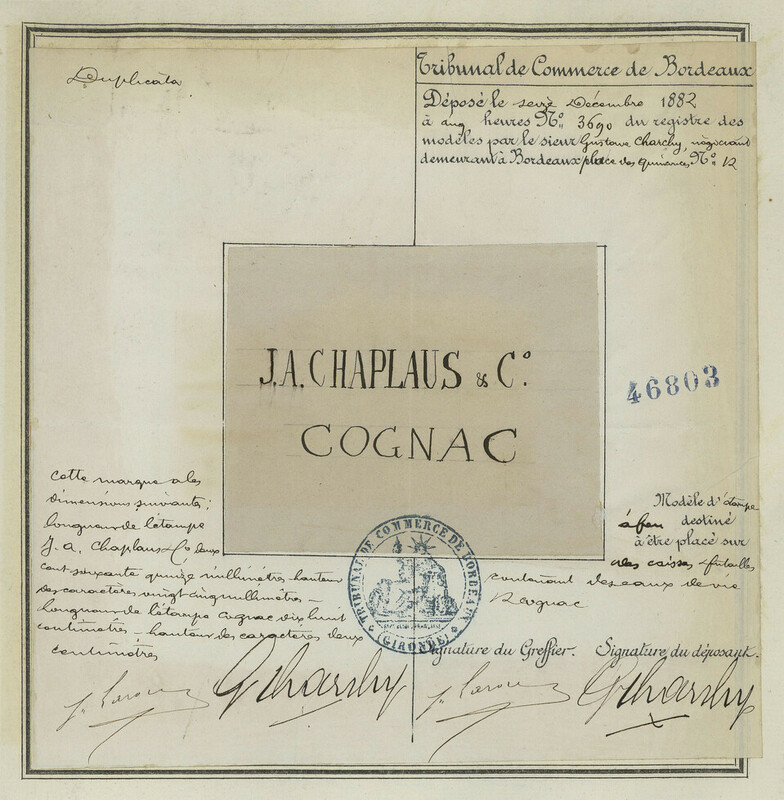 Duplicata
Tribunal de Commerce de Bordeaux
Déposé le seize Décembre 1882
à heures N° 3690 du registre des
modèles par le sieur Gustave Charchy, négociant
demeurant à Bordeaux place des quinconces N° 12
J.A. CHAPLAUS & C°
COGNAC
46803
cette marque a les
dimensions suivantes :
longueur de l'étampe
J. A. Chaplaus & Co deux
cent soixante quinze millimètres - hauteur
des caractères vingt cinq millimètres -
longueur de l'étampe cognac dix huit
centimètres - hauteur des caractères deux
centimètres
Modèle d'étampe
à feu destiné
à être placé sur
des caisses & futailles
contenant des eaux de vie
& cognac
TRIBUNAL DE COMMERCE DE BORDEAUX
(GIRONDE)
Signature du Greffier. Signature du déposant.